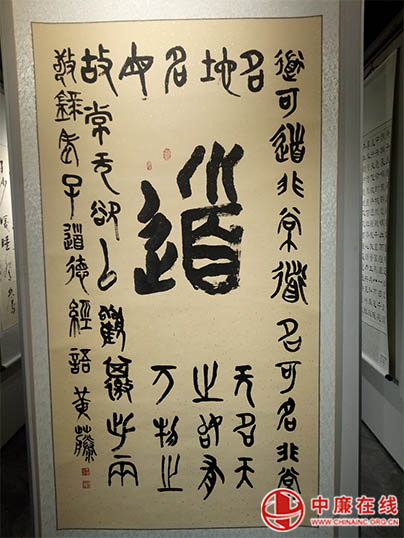 道可道非常道名可名非常
名无名天
地之始有
名万物之
母
道
故常无欲以觀徼此两
敬錄老子道德經語 黄藤
中廉在线
WWW.CHINAINC.ORG.CN